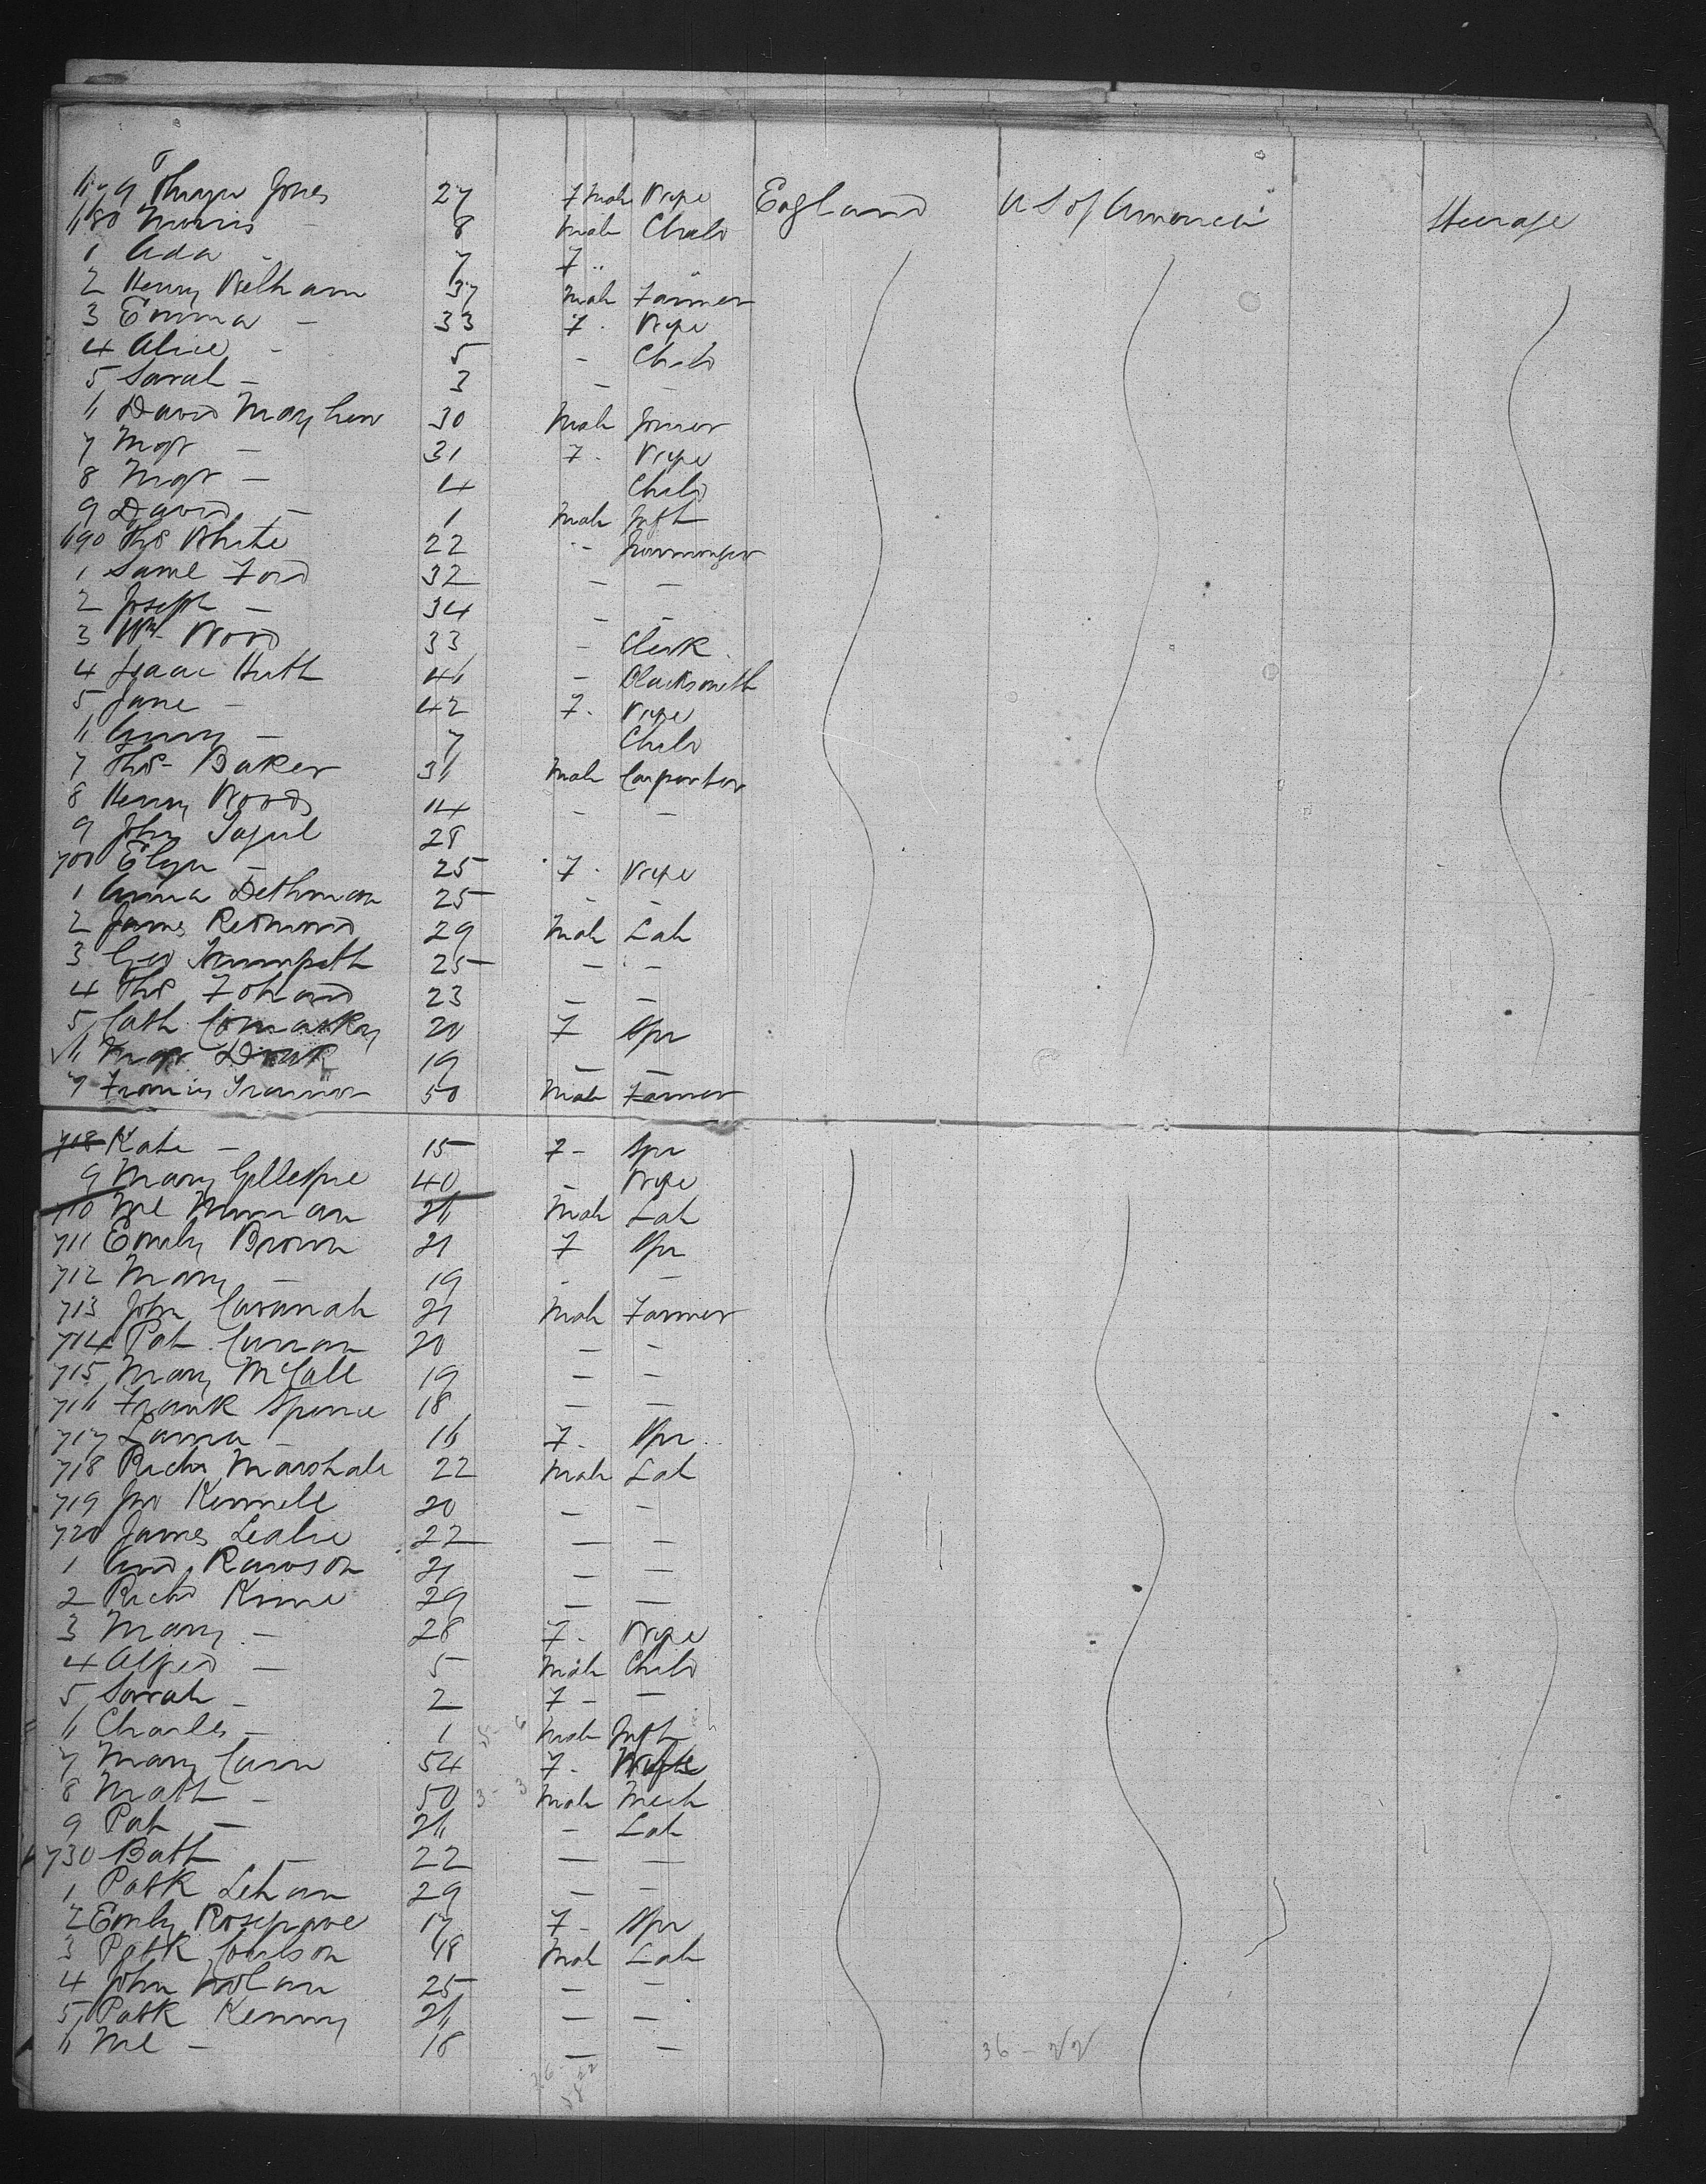 679 Jones 27 Female Wife England U S of America Steerage
680 Morris - 8 Male Child
1 Ada - 7 F " "
2 Henry Welham 37 Male Farmer
3 Emma - 33 F. Wife
4 Alice - 5 - Child
5 Sarah - 3 - -
6 David Mayhew 30 Male Joiner
7 Mgt - 31 F. Wife
8 Mgt - 4 Child
9 David - 1 Male Inft
690 Thos White 22 " - Ironmonger
1 Saml Ford 32 - -
2 Joseph - 34 - -
3 Wm Wood 33 - Clerk
4 Isaac Huth 46 - Blacksmith
5 Jane - 42 F. Wife
6 Anny - 7 Child
7 Thos Baker 36 Male Carpenter
8 Henry Woods 14 - -
9 John 28
700 Eliza - 25 F. Wife
1 Anna Dethman 25 - -
2 James Redmond 29 Male Lab
3 Geo 25 - -
4 Thos 23 - -
5 Cath Comaskey 20 F Spr
6 Mgt 19 - -
7 Francis Trainor 50 Male Farmer
708 Kate - 15 F - Spr
9 Mary Gillespie 40 - Wife
710 Ml 26 Male Lab
711 Emily Brown 21 F Spr
712 Mary - 19 - -
713 John Cavanah 21 Male Farmer
714 Pat Curran 20 - -
715 Mary McCall 19 - -
716 Frank Spence 18 - -
717 - 16 F. Spr
718 Richd Marshall 22 Male Lab
719 Jno Kennell 20 - -
720 James Leslie 22 - -
1 And Rawson 21 - -
2 Richd Kime 29 - -
3 Mary - 28 F. Wife
4 Alfred - 5 Male Child
5 Sarah - 2 F - -
6 Charles - 1 Male Inft
7 Mary Carn 54 F. Wife
8 Math - 50 Male Mech
9 Pat - 26 - Lab
730 Bath - 22 - -
1 Patk Lehan 29 - -
2 Emily Rosegrave 17 F - Spr
3 Patk Coulson 48 Male Lab
4 John Nolan 25 - -
5 Patk Kenny 26 - -
6 Ml - 18 - -
36 - 22